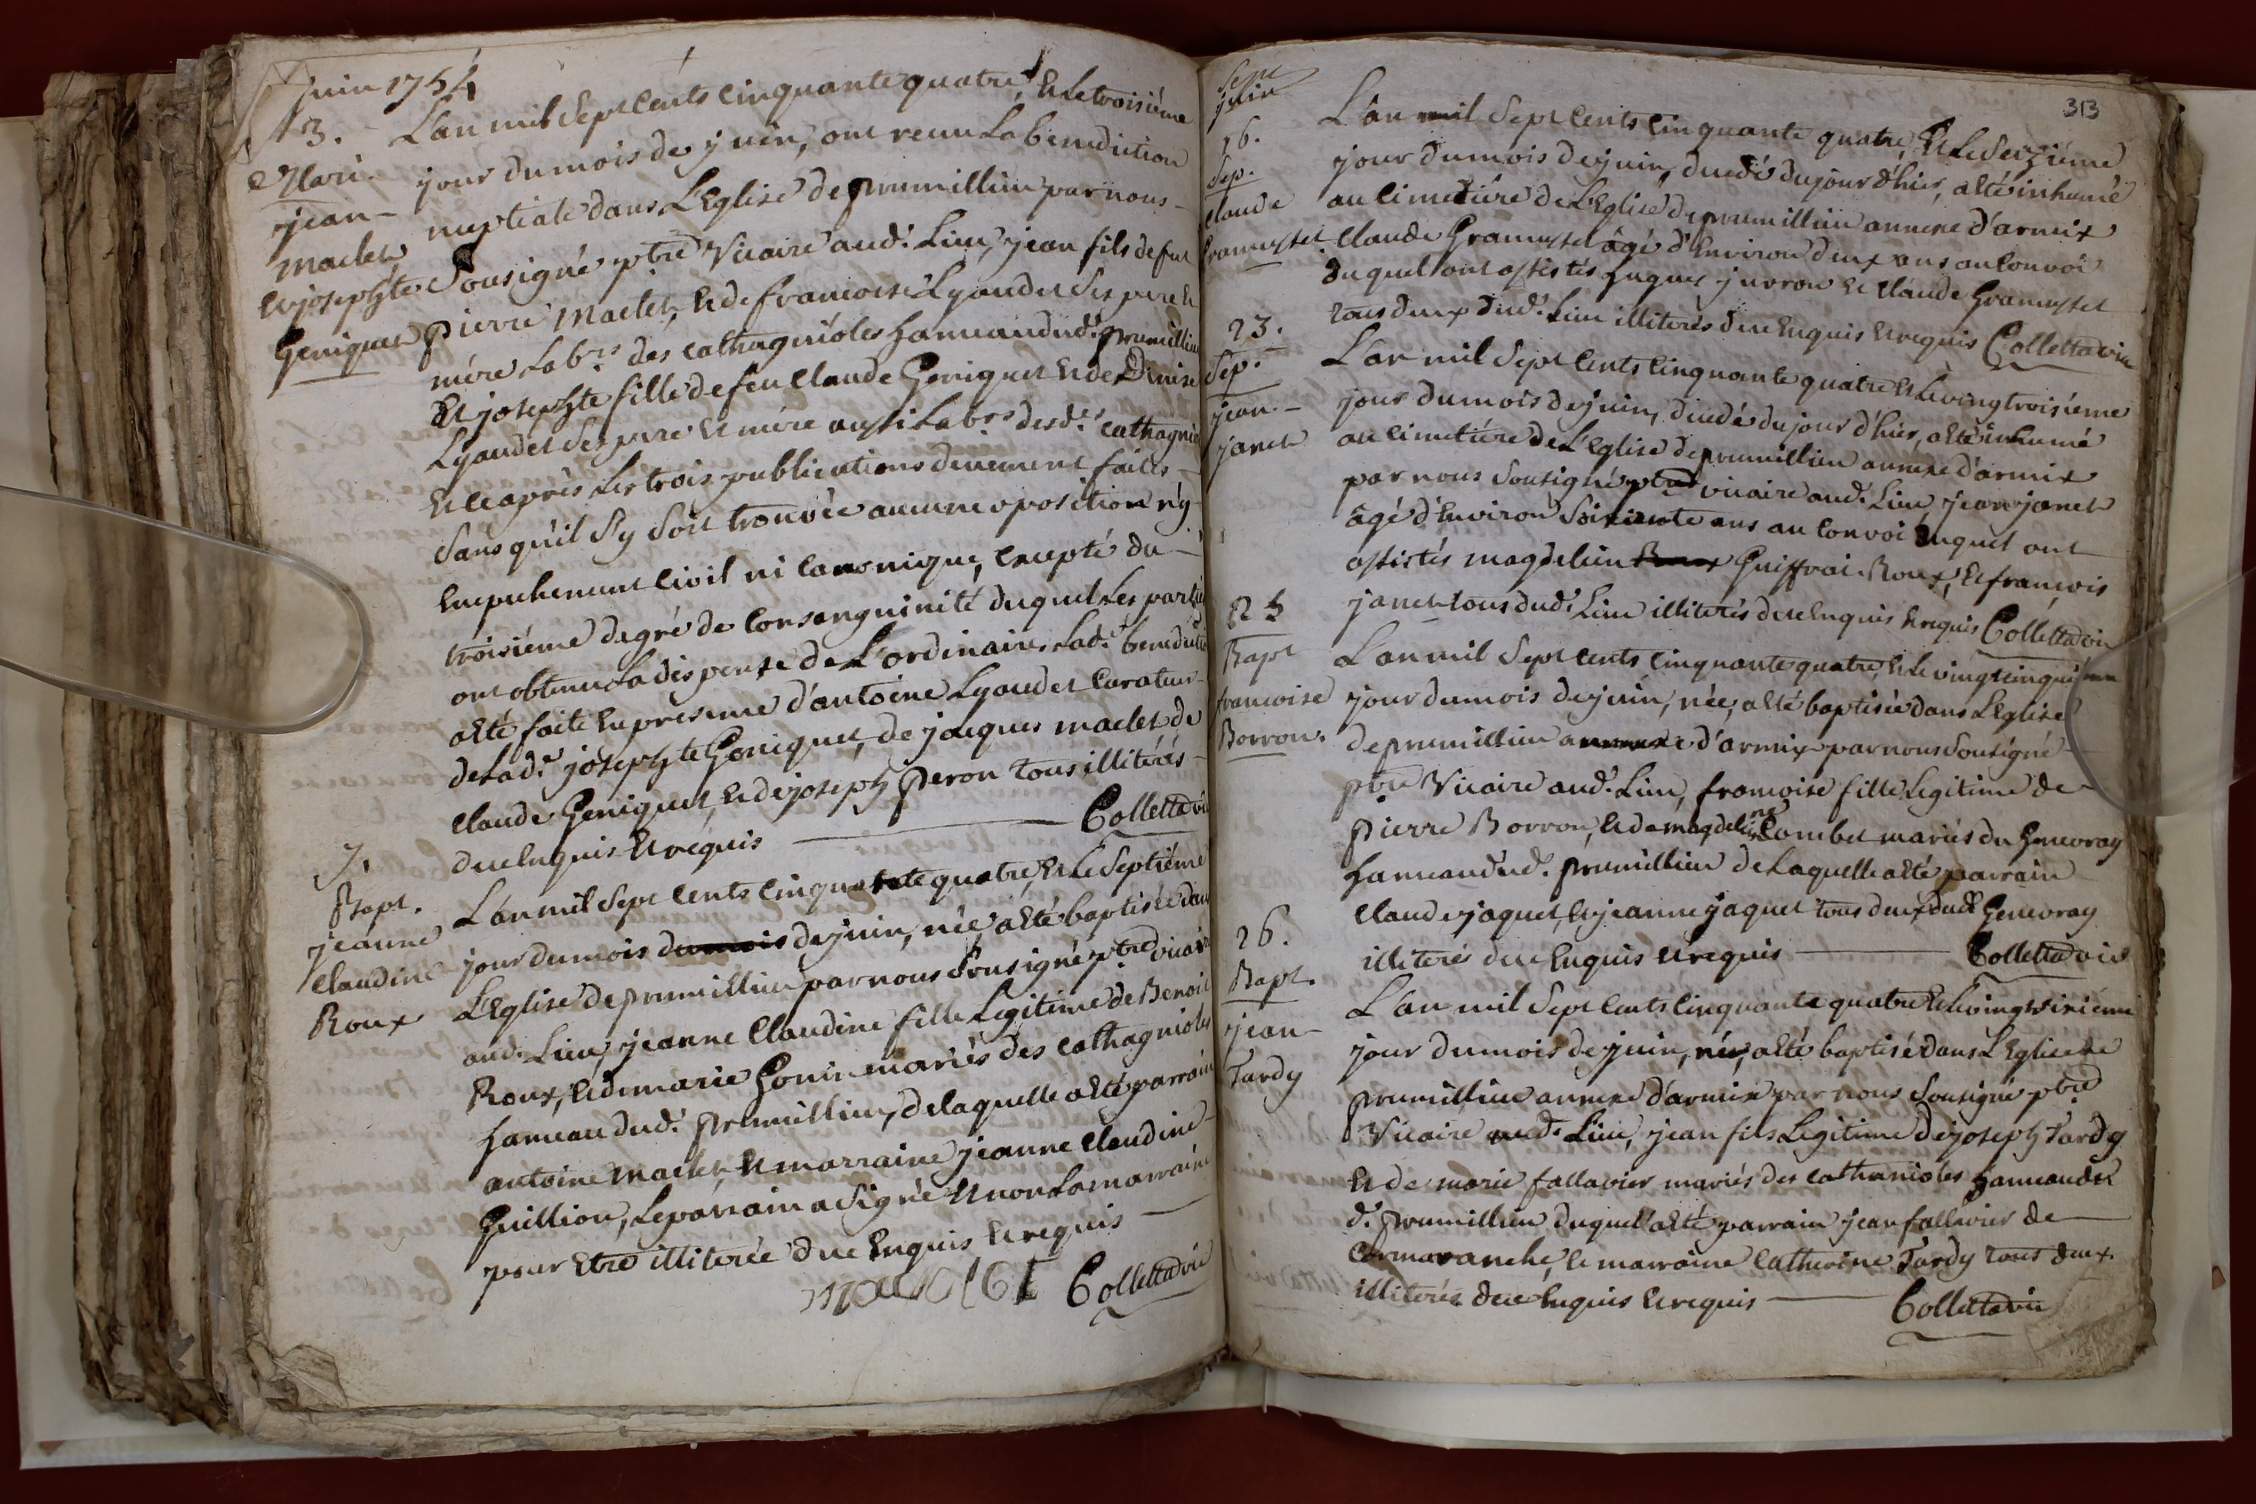 juin 1754
3.
Mari.
jean
maclet
et josephte
Geniquet
L'an mil Sept Cents Cinquante quatre, et Le troisième
jour du mois de juin, ont recu La benediction
nuptiale dans L'Eglise de prumillieu par nous
Sousigné ptre Vicaire aud. Lieu, jean fils de feu
pierre Maclet, et de francoise Lyaudet Ses pere et
mére Labrs des cathagnioles hameau dud. prumillieu
Et josephte fille de feu Claude Geniquet et de Denise
Lyaudet Ses pere et mére aussi Labrs desd. cathagnio
et ce après Les trois publications deuement faites
Sans qu'il S'y Soit trouvée aucune oposition n'y
Empechement Civil ni Canonique, Excepté du
troisiéme degré de Consanguinité duquel Les parties
ont obtenu La dispense de L'ordinaire, Lad. benediction
a Eté faite En presence d'antoine Lyaudet Curateur
de Lad. josephte Geniquet, de jacques maclet, de
Claude Geniquet, et de joseph peron tous illitérés
de ce Enquis et requis Colletta vic
7.
Bapt.
jeanne
Claudine
Roux
L'an mil Sept Cents Cinquante quatre, et Le Septiéme
jour du mois du mois de juin, née, a Eté baptisée dans
L'Eglise de prumillieu par nous Sousigné ptre vicaire
aud. Lieu, jeanne Claudine fille Legitime de Benoit
Roux, et de marie Gonin mariés des cathagnioles
hameau dud. prumillieu, de laquelle a Eté parrain
antoine maclet, et marraine jeanne Claudine
Guillion, Le parrain a Signé et non La marraine
pour Etre illiterée de ce Enquis et requis
Colletta vic
313
Sept
juin
16.
Sep.
Claude
L'an mil Sept Cents Cinquante quatre, et Le Seizième
jour du mois de juin, decedé du jour d'hier, a Eté inhumé
au Cimetiére de L'Eglise de prumillieu annexe d'armix
Claude Gramusset âgé d'Environ deux ans au Convoi
duquel ont assistés hugues juvron et Claude Gramusset
tous deux dud. Lieu illiterés de ce Enquis et requis Colletta vic
23.
Sep.
jean
janet
L'an mil Sept Cents Cinquante quatre et Le vingtroisiéme
jour du mois de juin, decedé du jour d'hier, a Eté inhumé
au Cimetiére de L'Eglise de prumillieu annexe d'armix
par nous Sousigné ptre vicaire aud. Lieu, jean janet
âgé d'Environ Soixante ans au Convoi duquel ont
assistés magdelein Roux Guiffrai Roux, et francois
janet tous dud. Lieu illiterés de ce Enquis et requis Colletta vic
25
Bapt
francoise
Borron.
L'an mil Sept Cents Cinquante quatre, et Le vingtcinquiéme
jour du mois de juin, née, a Eté baptisée dans L'Eglise
de prumillieu annexe d'armix par nous Sousigné
ptre Vicaire aud. Lieu, francoise fille Legitime de
pierre Borron, et de magdeleine Combet mariés du Genevray
hameau dud. prumillieu de Laquelle a Eté parrain
Claude jaquet, et jeanne jaquet tous deux dud. Genevray
illiterés de ce Enquis et requis Colletta vic
26.
Bapt.
jean
Tardy
L'an mil Sept Cents Cinquante quatre et Le vingtsixiéme
jour du mois de juin, né, a Eté baptisé dans L'Eglise de
prumillieu annexe d'armix par nous Sousigné ptre
Vicaire aud. Lieu, jean fils Legitime de joseph Tardy
et de marie fallavier mariés des cathanioles hameau du
d. prumillieu duquel a Eté parrain jean fallavier de
Cormaranche, et marraine Catherine Tardy tous deux
illiterés de ce Enquis et requis Colletta vic